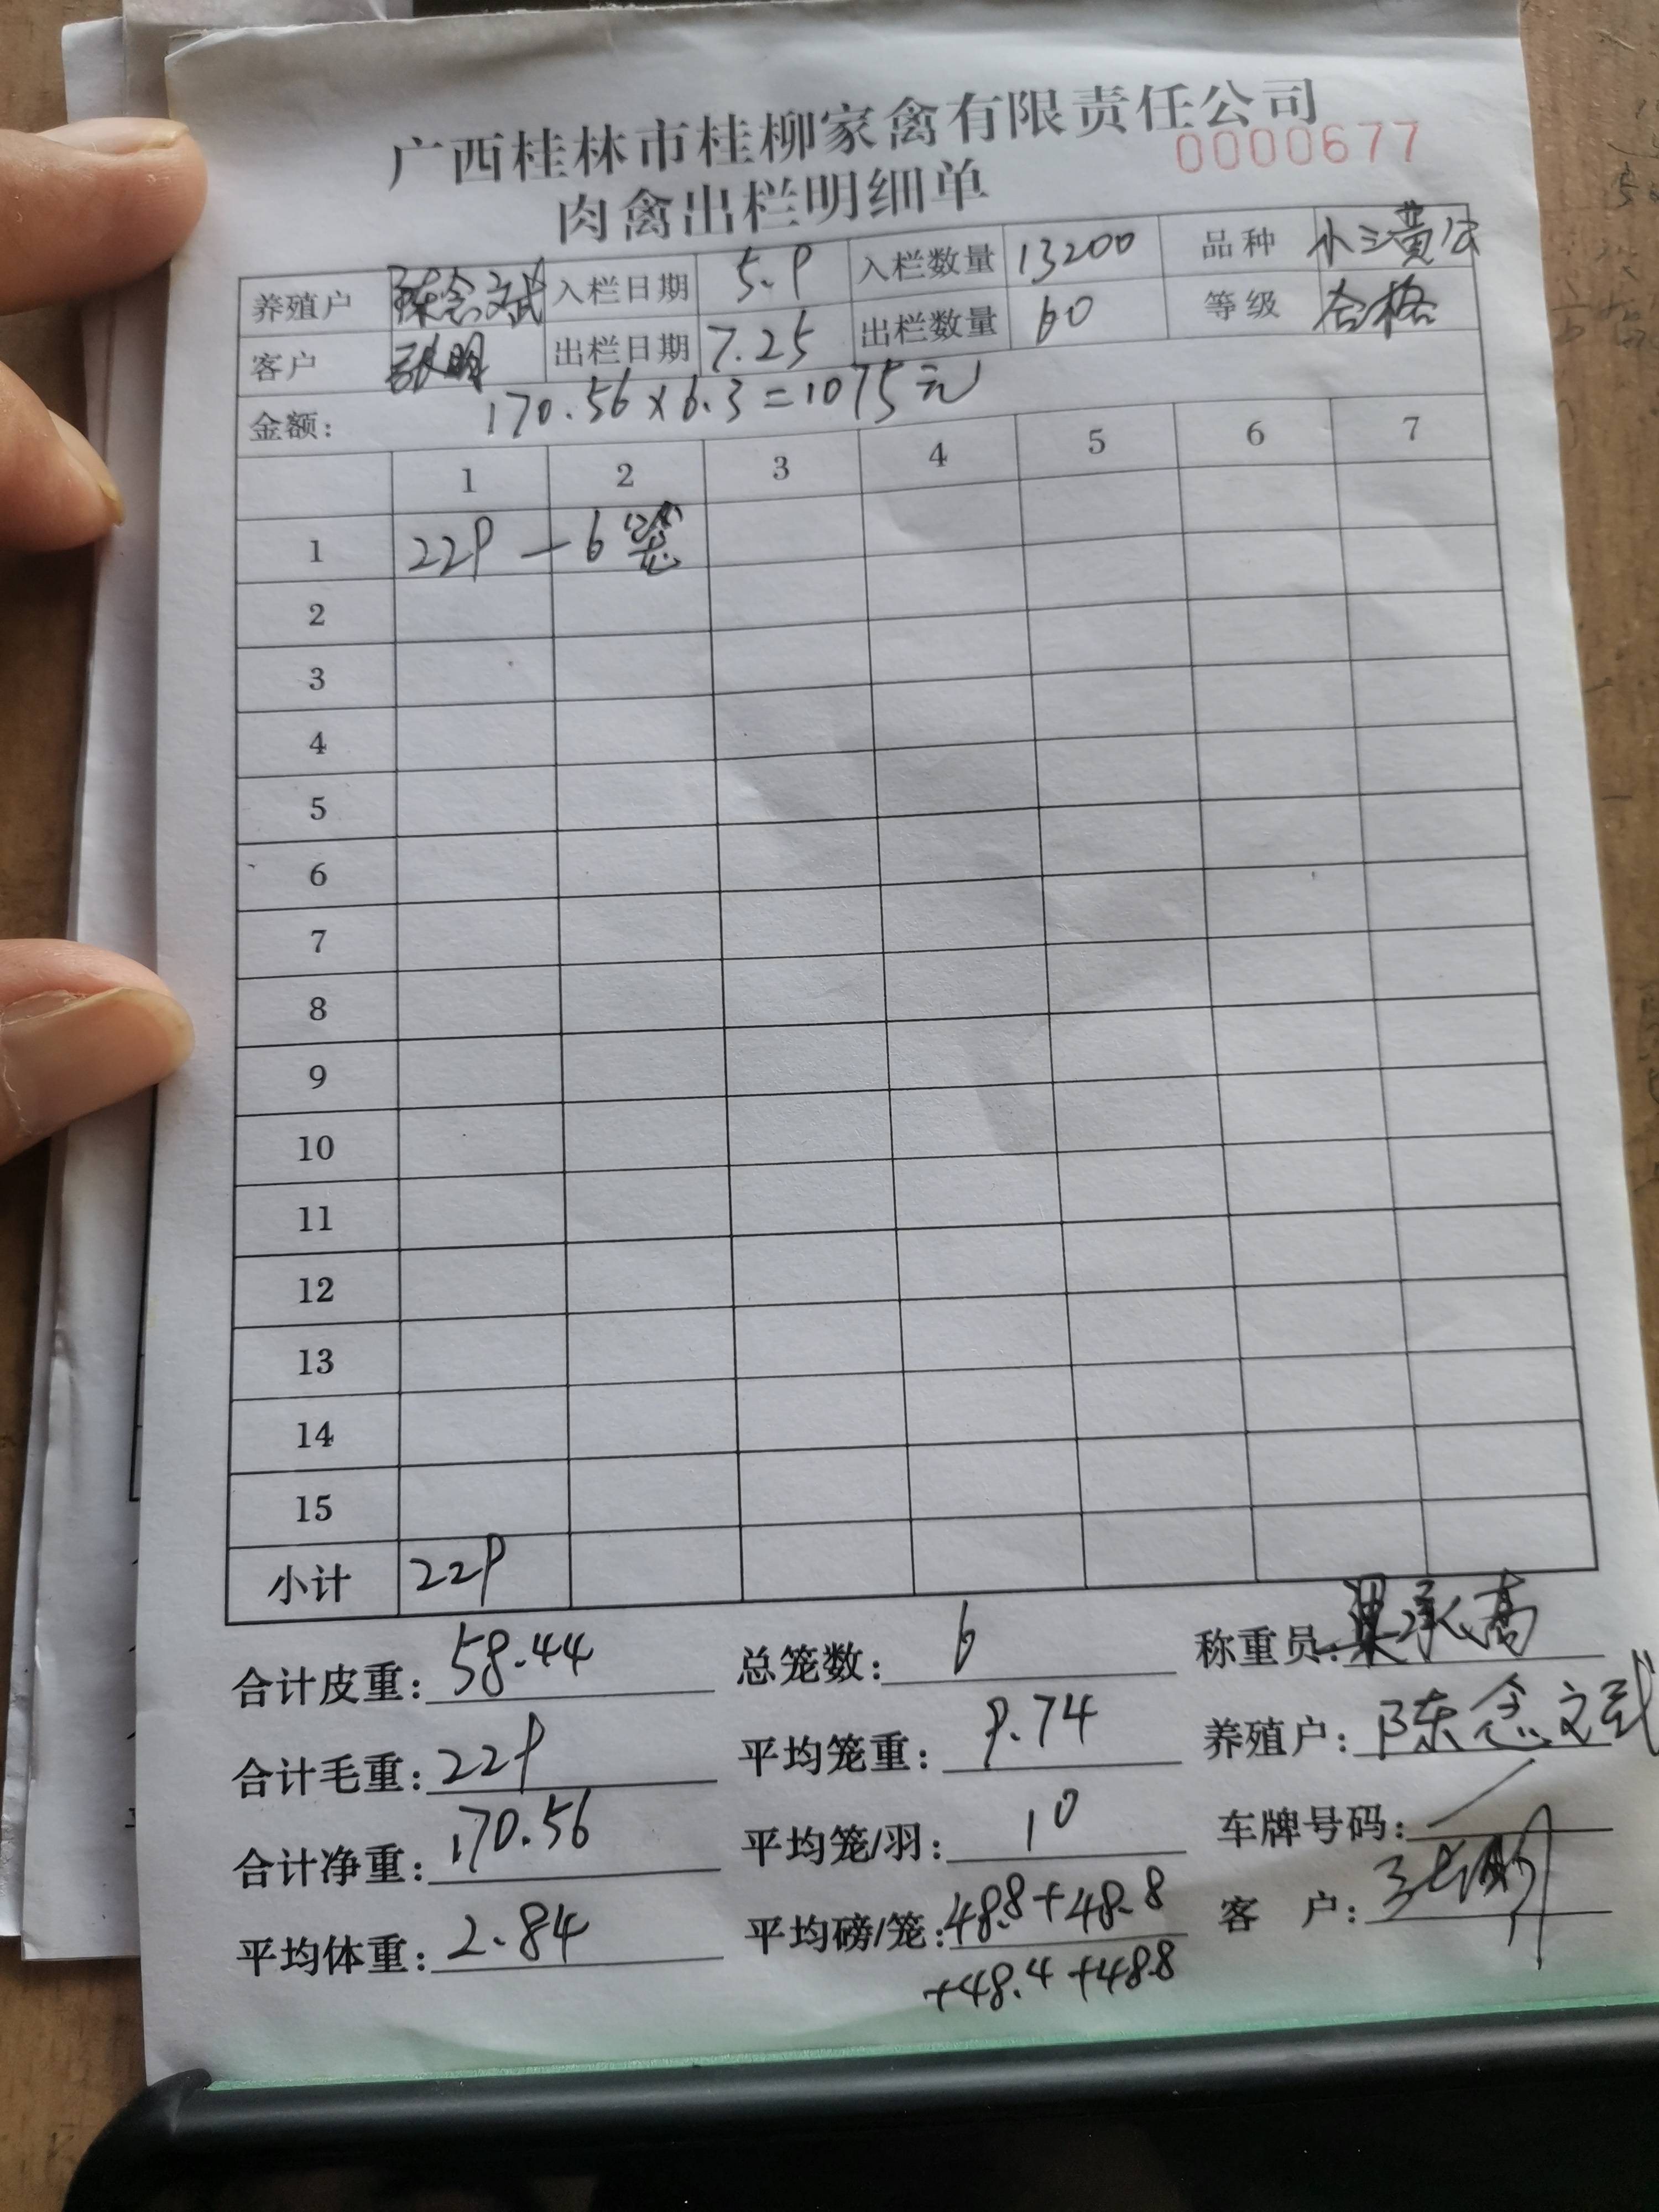 广西桂林市桂柳家禽有限责任公司
0000677
肉禽出栏明细单
养殖户 陈念文武 入栏日期 5.9 入栏数量 13200 品种 小三黄公
客户 张明 出栏日期 7.25 出栏数量 60 等级 合格
金额: 170.56×6.3=1075元
1 2 3 4 5 6 7
1 229 — 6笼
2
3
4
5
6
7
8
9
10
11
12
13
14
15
小计 229
合计皮重: 58.44 总笼数: 6 称重员: 梁承高
合计毛重: 229 平均笼重: 9.74 养殖户: 陈念文武
合计净重: 170.56 平均笼/羽: 10 车牌号码:
平均体重: 2.84 平均磅/笼: 48.8+48.8 客 户:
+48.4+48.8